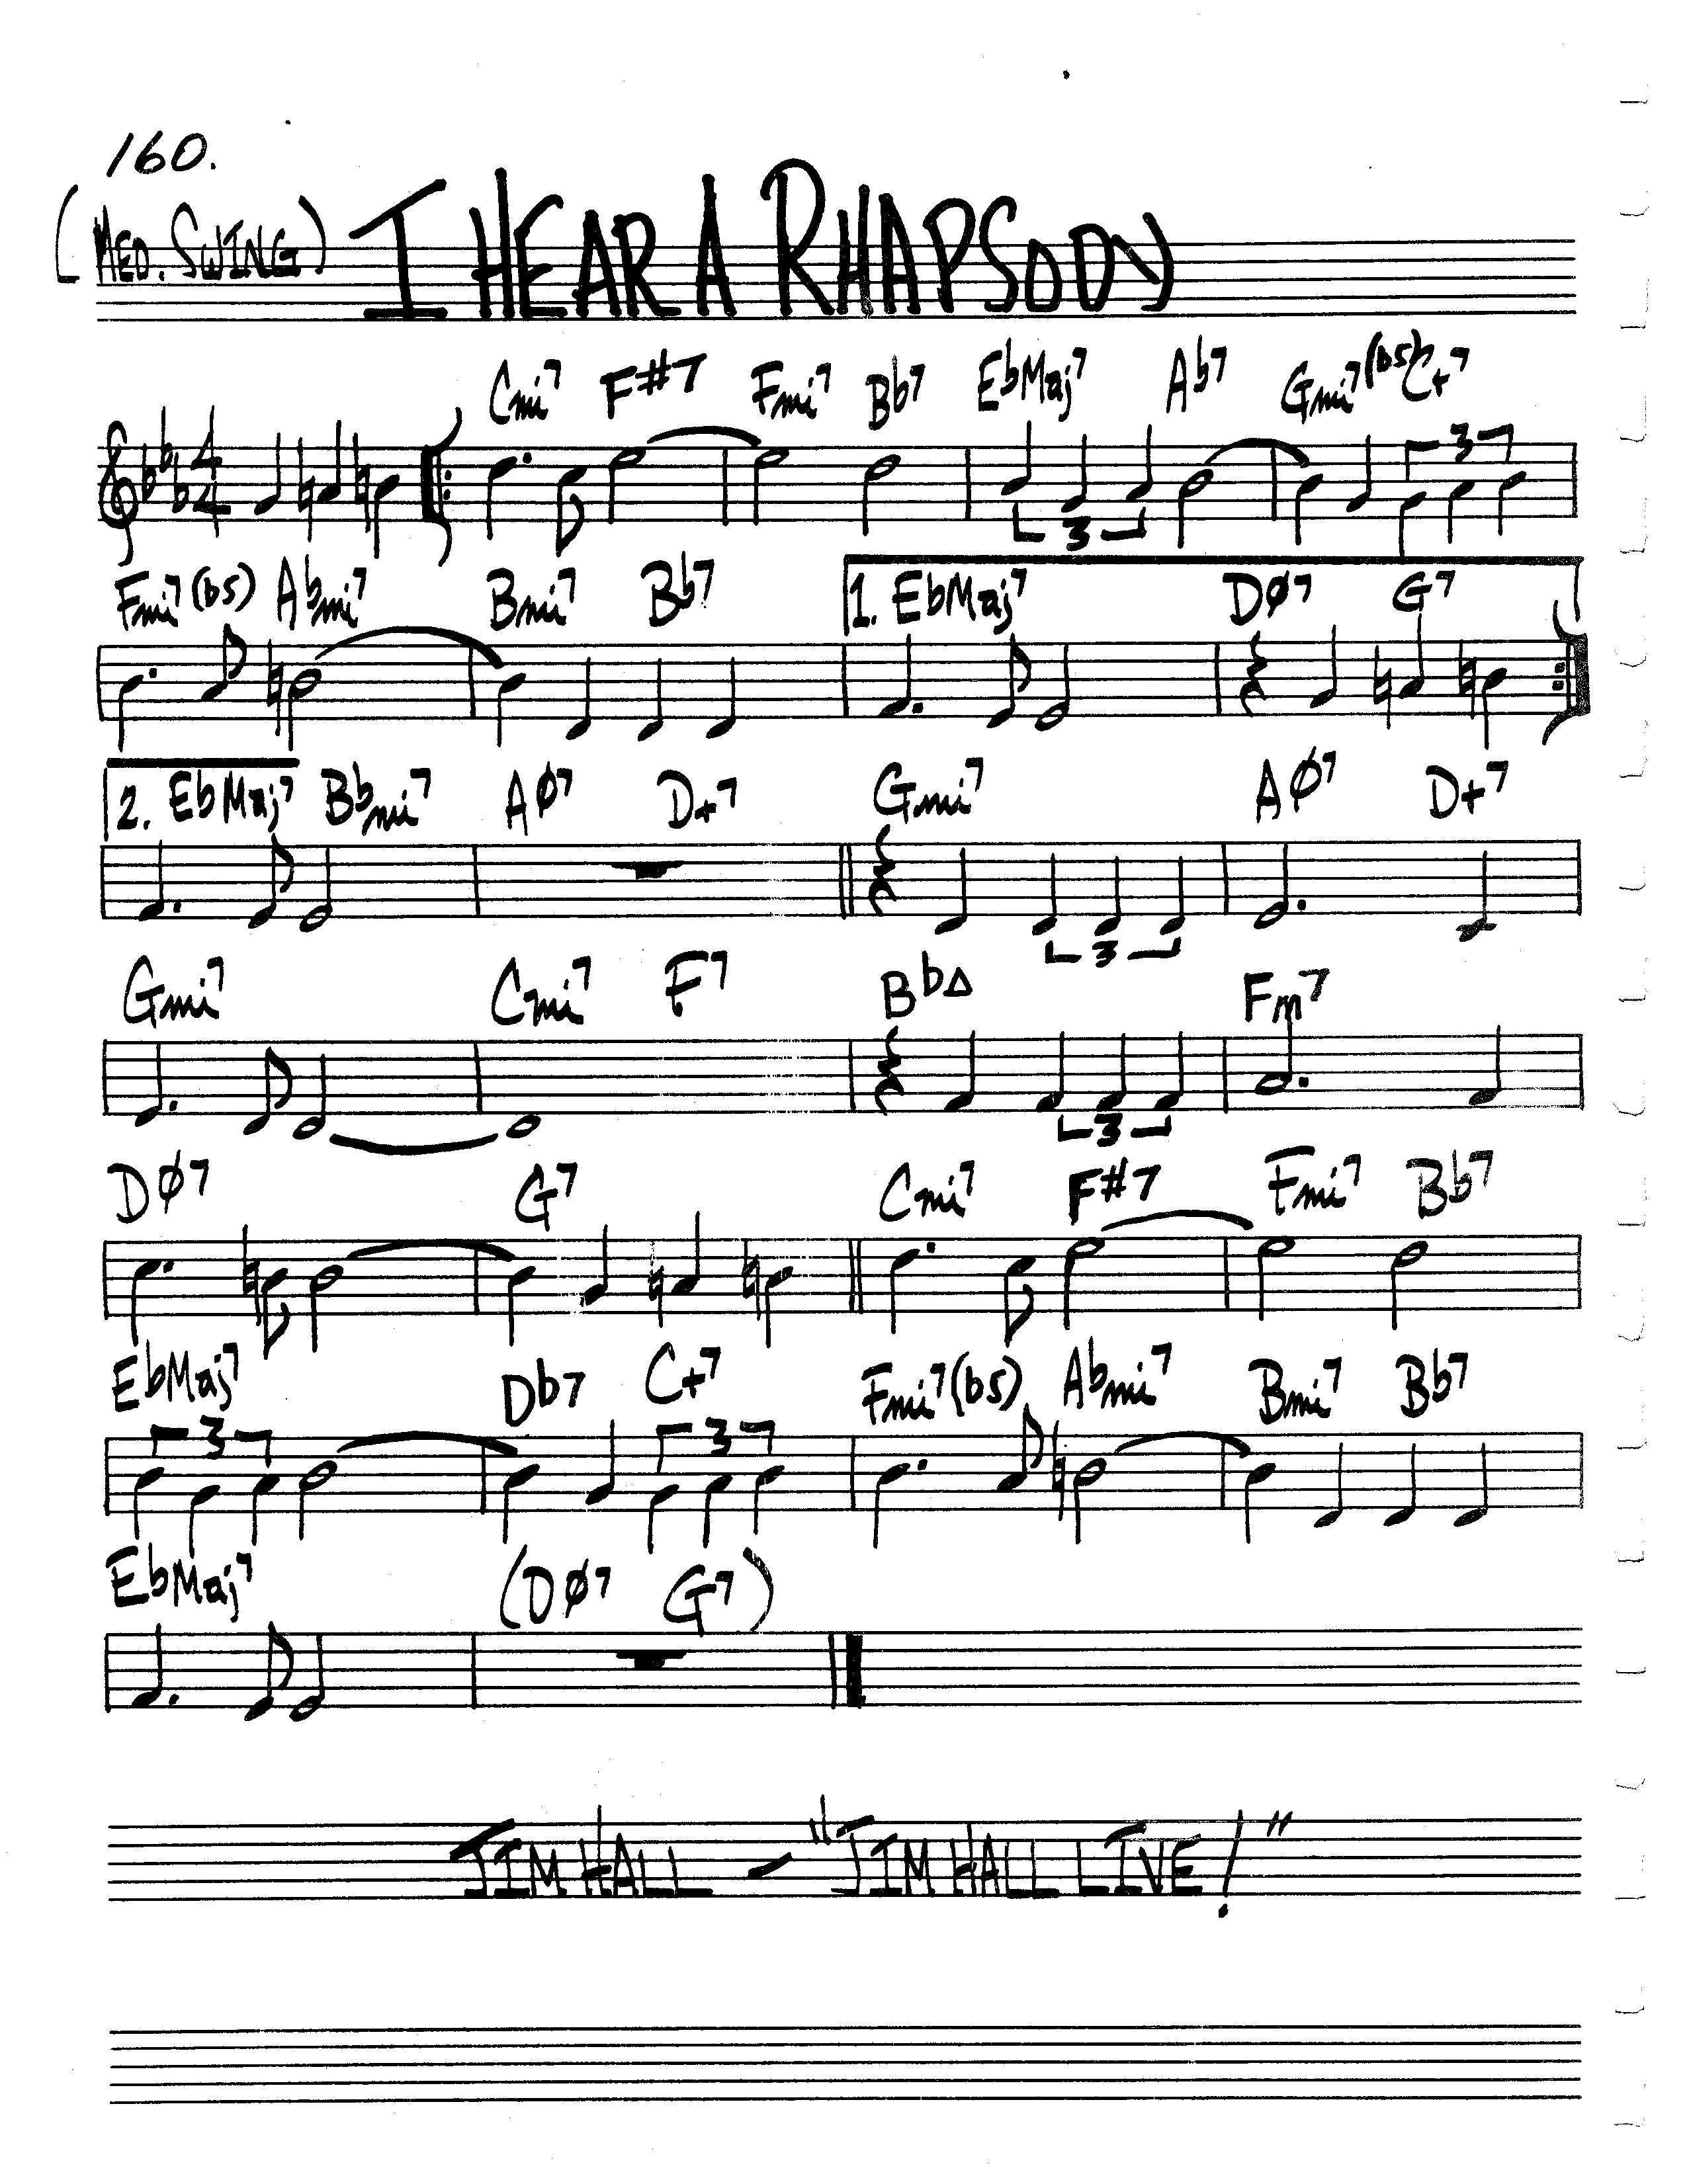 160.
(MED. SWING) I HEAR A RHAPSODY
Cmi7 F#7 Fmi7 Bb7 EbMaj7 Ab7 Gmi7(b5) C+7
4/4 3 3
Fmi7(b5) Abmi7 Bmi7 Bb7 1. EbMaj7 DØ7 G7
2. EbMaj7 Bbmi7 AØ7 D+7 Gmi7 AØ7 D+7
3
Gmi7 Cmi7 F7 Bb∆ Fm7
3
DØ7 G7 Cmi7 F#7 Fmi7 Bb7
EbMaj7 Db7 C+7 Fmi7(b5) Abmi7 Bmi7 Bb7
3 3
EbMaj7 (DØ7 G7)
JIM HALL – "JIM HALL LIVE!"